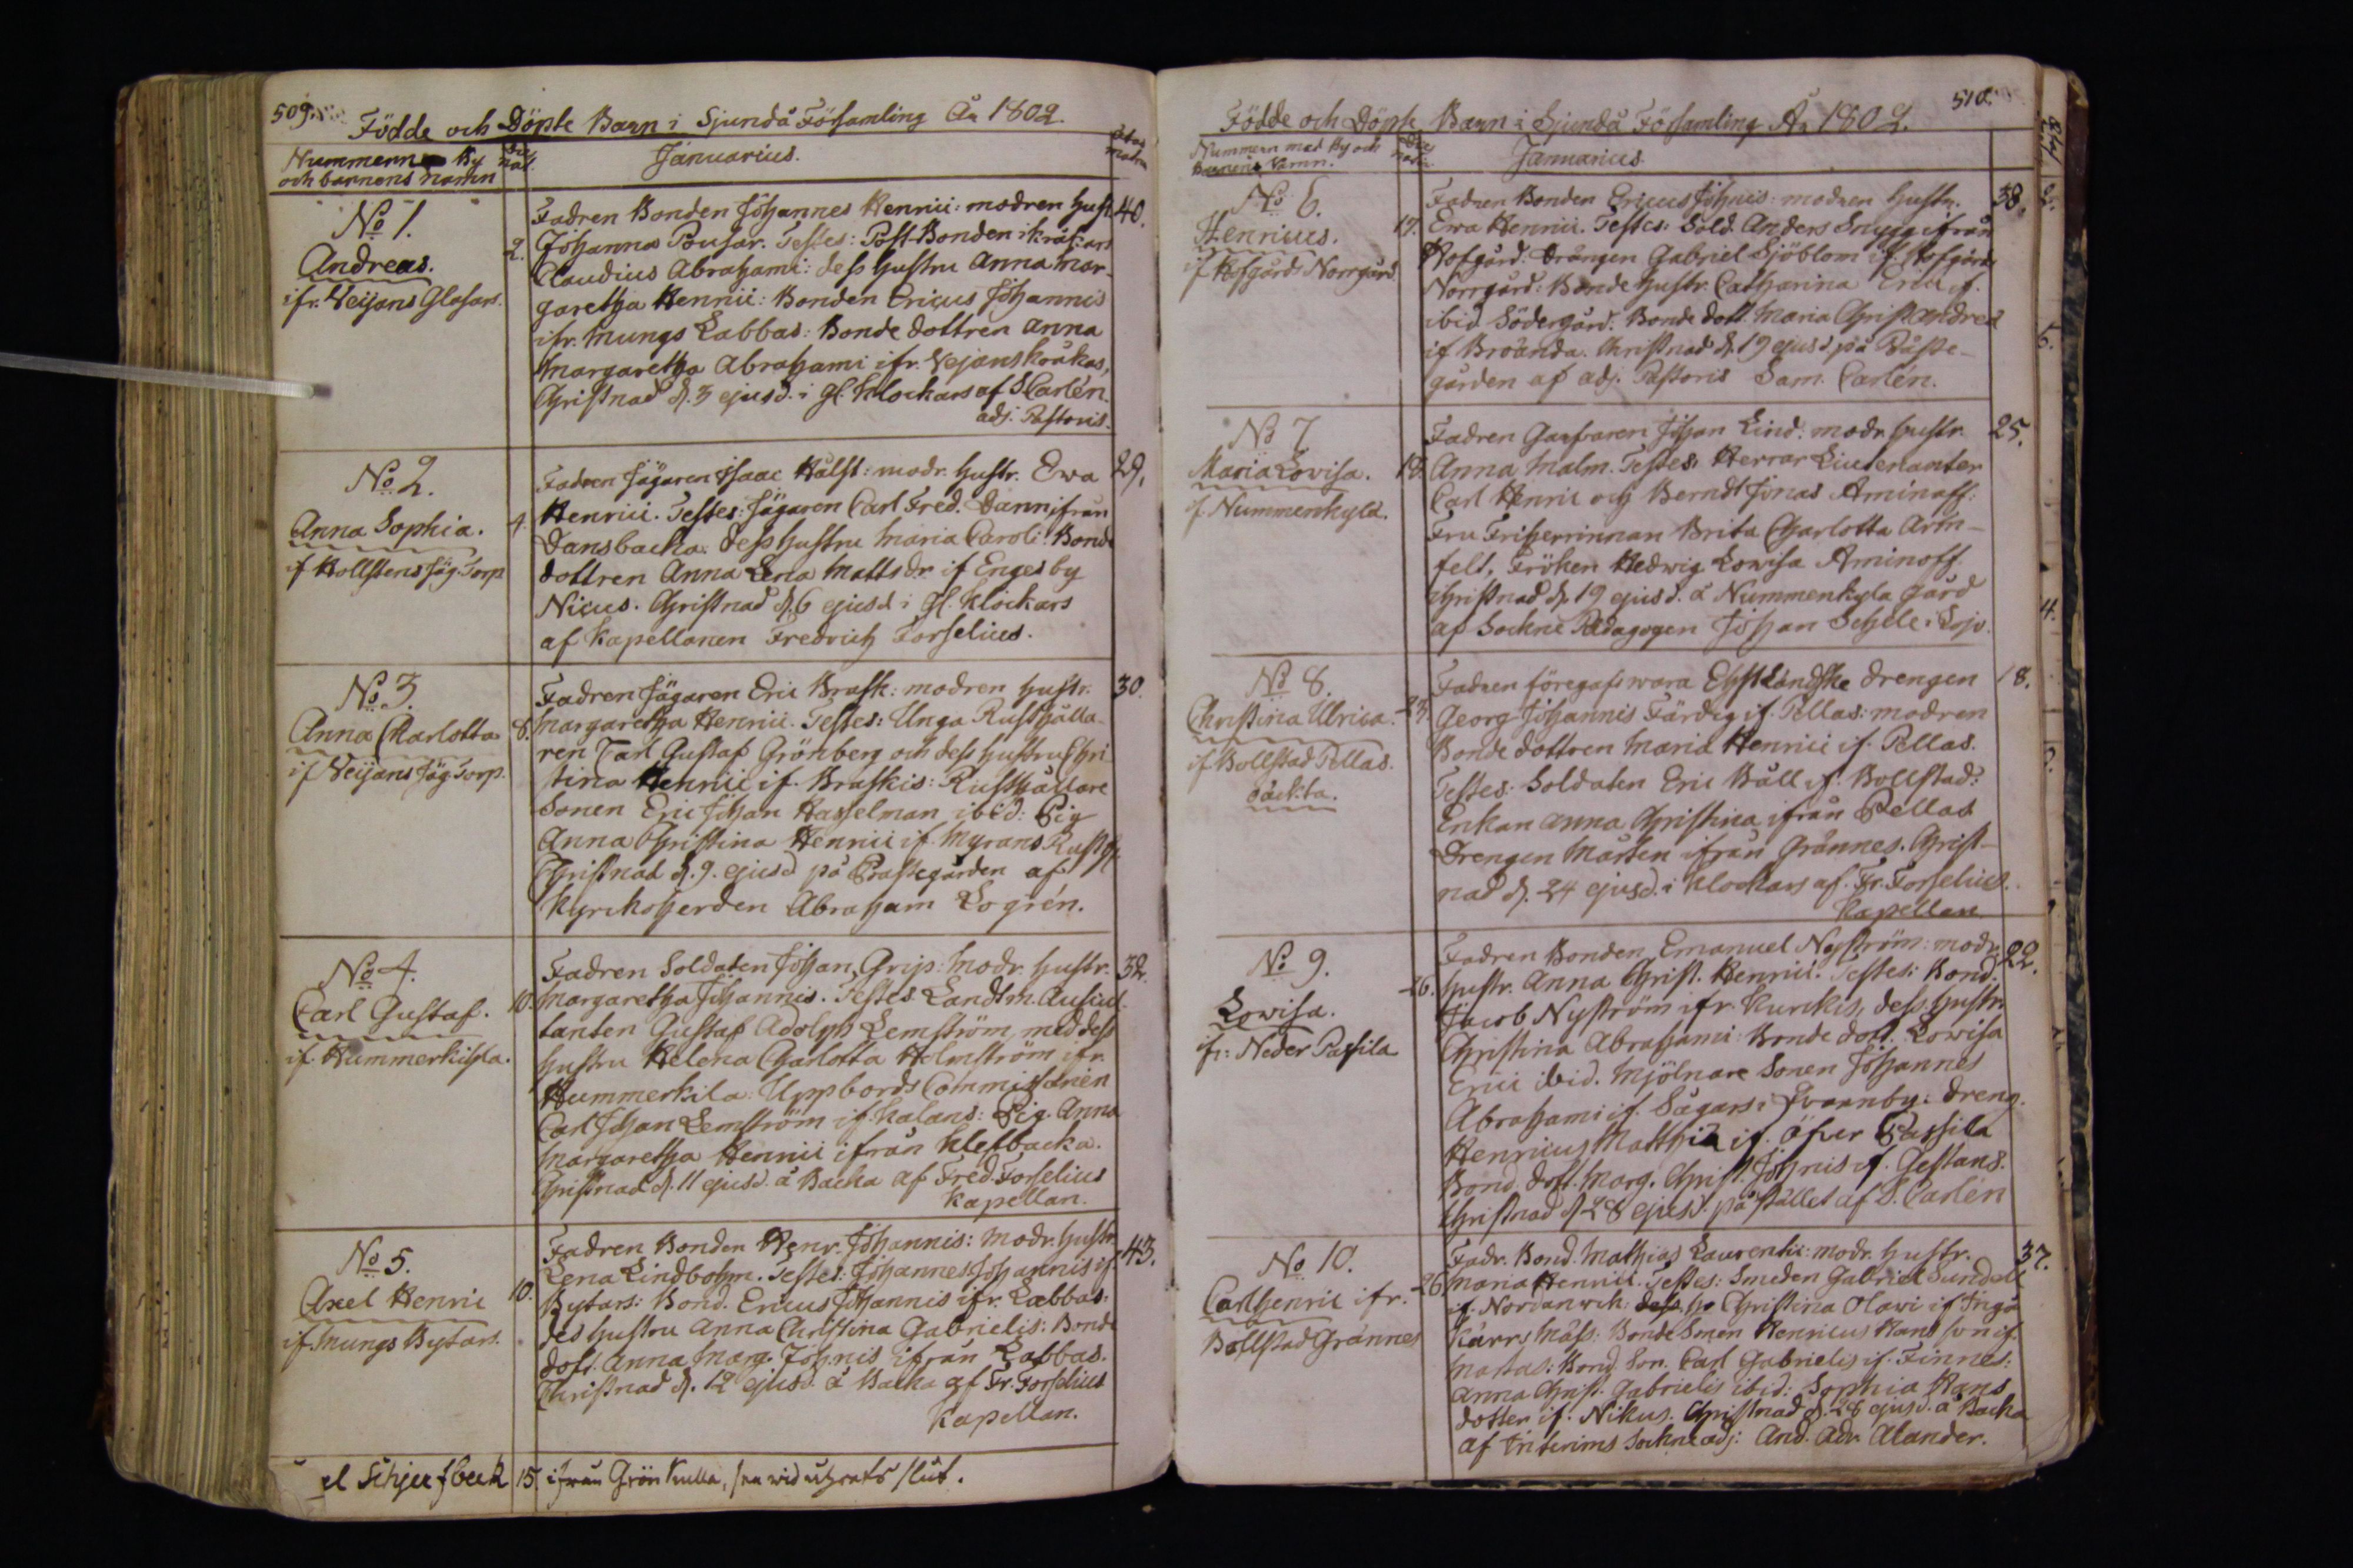 509.
Födde och Döpte Barn i Sjundå Församling År 1802.
Nummern By
och barnens namn
Januarius.
No 1.
Andreas.
ifr. Veijans Glasars.
2.
40.
Fadren Bonden Johannes Henrici: modren hust.
Johanna Pousar. Testes: Post-Bonden i kråkars
Claudius Abrahami: dess hustru Anna Mar-
garetha Henrici: Bonden Ericus Johannis
ifr. Mungs Labbas: Bonde dottren Anna
Margaretha Abrahami ifr. Vejans kråkas,
Christnad d. 3 ejusd. i Gl. Klockars af S Carlén.
adj. Pastoris.
No 2.
Anna Sophia.
if Bollstens Jäg. Torp
4.
29.
Fadren Jägaren Isaac Hälst: modr. hustr. Ewa
Henrici. Testes: Jägaren Carl Fred. Dann ifrån
Dansbacka: dess hustru Maria Caroli: Bonde
dottren Anna Lena Mattsdr. if Engesby
Nicus. Christnad d. 6 ejusd i Gl. Klockars
af Kapellanen Fredrich Forselius.
No 3.
Anna Charlotta
if Veijans Jäg. Torp.
8.
30.
Fadren Jägaren Eric Brask: modren hustr.
Margaretha Henrici. Testes: Unga Rusthålla-
ren Carl Gustaf Grönberg och dess hustru Chri-
stina Henrici if. Braskis: Rusthållare
Sonen Eric Johan Hasselman ibid: Pig
Anna Christina Henrici if. Myrans Rusth.
Christnad d. 9. ejusd på Prästegården af
Kyrckoherden Abraham Logrén.
No 4.
Carl Gustaf.
if. Hummerkihla.
10.
32.
Fadren Soldaten Johan Grip: Modr. hustr.
Margaretha Johannis. Testes Landtm. Auscul-
tanten Gustaf Adolph Lemström, med dess
hustru Helena Charlotta Holmström ifr.
Hummerkila: Uppbords Commissarien
Carl Johan Lemström if. Kalans: Pig. Anna
Margaretha Henrici ifrån Klefbacka.
Christnad d. 11 ejusd. å Backa af Fred. Forselius
Kapellan.
No 5.
Axel Henric
if. Mungs Bytars.
10.
43.
Fadren Bonden Henr. Johannis: Modr. hustr.
Lena Lindbohm. Testes: Johannes Johannis if.
Bytars: Bond. Ericus Johannis ifr. Labbas:
des hustru Anna Christina Gabrielis: Bonde
dott. Anna Marg. Johnis ifrån Labbas.
Christnad d. 12 ejusd. å Backa af Fr. Forselius
Kapellan.
el Schjerfbeck 15. ifrån Grön Kulla, se wid slut.
510.
Födde och Döpte Barn i Sjundå Församling År 1802.
Nummern med By och
Barnens Namn.
Januarius.
No 6.
Henricus.
if Hofgårds Norrgård
17.
38.
Fadren Bonden Ericus Johnis: modren hustr.
Ewa Henrici. Testes: Sold. Anders Snygg ifrån
Hofgård. Drängen Gabriel Sjöblom if. Hofgårds
Norrgård: Bonde hustr. Catharina Erici if.
ibid Södergård. Bonde dott. Maria Christ Andreæ
if Broända. Christnad d. 19 ejusd. på Präste-
gården af adj. Pastoris Sam. Carlén.
No 7
Maria Lovisa.
if. Nummenkyla.
18.
25.
Fadren Garfvaren Johan Lind: modr hustr.
Anna Malm. Testes: Herrar Lieutenanter
Carl Henric och Berndt Jonas Aminoff:
Fru Friherrinnan Brita Charlotta Arm-
felt. Fröken Hedwig Lowisa Aminoff.
Christnad d. 19 ejusd. å Nummenkyla Gård
af Sockne Pædagogen Johan Schele i Lojo.
No 8.
Christina Ulrica.
if Bollstad Pellas.
oäckta.
23.
18.
Fadren föregafs wara Ehstländske drengen
Georg Johannis Färdig if. Pellas: modren
Bonde dottren Maria Henrici if. Pellas.
Testes: Soldaten Eric Båll if. Bollstad:
Enkan Anna Christina ifrån Pellas
Drengen Mårten ifrån Grännes. Christ-
nad d. 24 ejusd. i Klockars af. Fr. Forselius.
Kapellan.
No 9.
Lowisa.
ifr: Neder Passila
26.
22.
Fadren Bonden Emanuel Nyström: modr.
hustr. Anna Christ. Henrici. Testes: Bond.
Jacob Nyström ifr. Kurckis, dess hustr.
Christina Abrahami: Bonde dott. Lowisa
Erici ibid. Mjölnare Sonen Johannes
Abrahami if. Sågars i Qvarnby: dreng.
Henricus Matthiæ if. Öfver Passila
Bond. dott. Marg. Christ. Johnis if. Gestans.
Christnad d 28 ejusd. på stället af S. Carlén
No 10.
Carl henric ifr.
Bollstad Grännes
26
37.
Fadr. Bond. Mathias Laurentii: modr. hustr.
Maria Henrici. Testes: Smeden Gabriel Sundell
if. Nordanvik: dess h. Christina Olavi if Ingå
Kärrs Måss: Bonde Sonen Henricus Hans son if.
Mattas: Bond. Son. Carl Gabrielis if. Finnes:
Anna Christ. Gabrielis ibid: Sophia Hans
dotter if. Nikus. Christnad d. 28 ejusd. å Backa
af Interims Sockne adj: And. Adr. Alander.